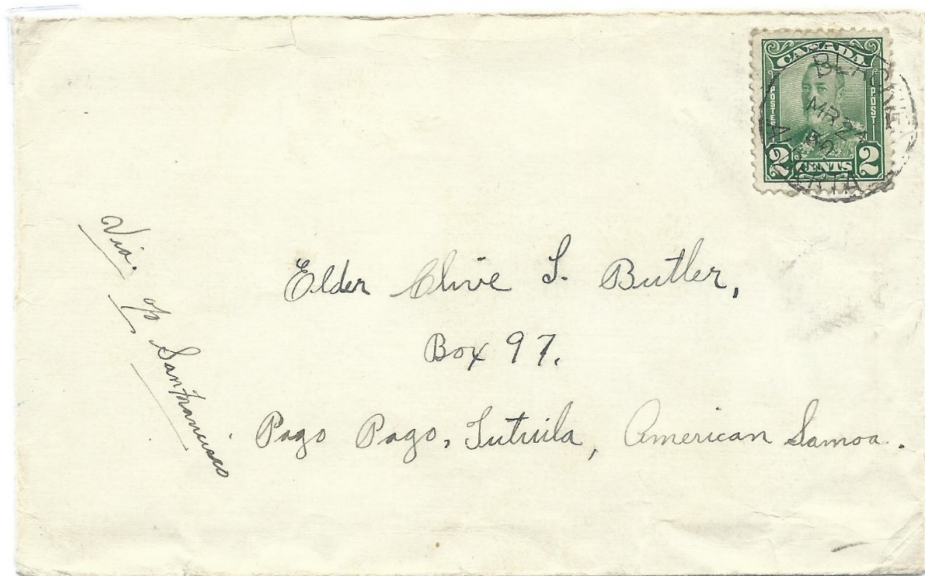 CANADA
POSTES POST
2 CENTS 2
MR 2
ALBERTA
Via.
c/o
San francisco
Elder Clive L. Butler,
Box 97.
Pago Pago, Tutuila, American Samoa.